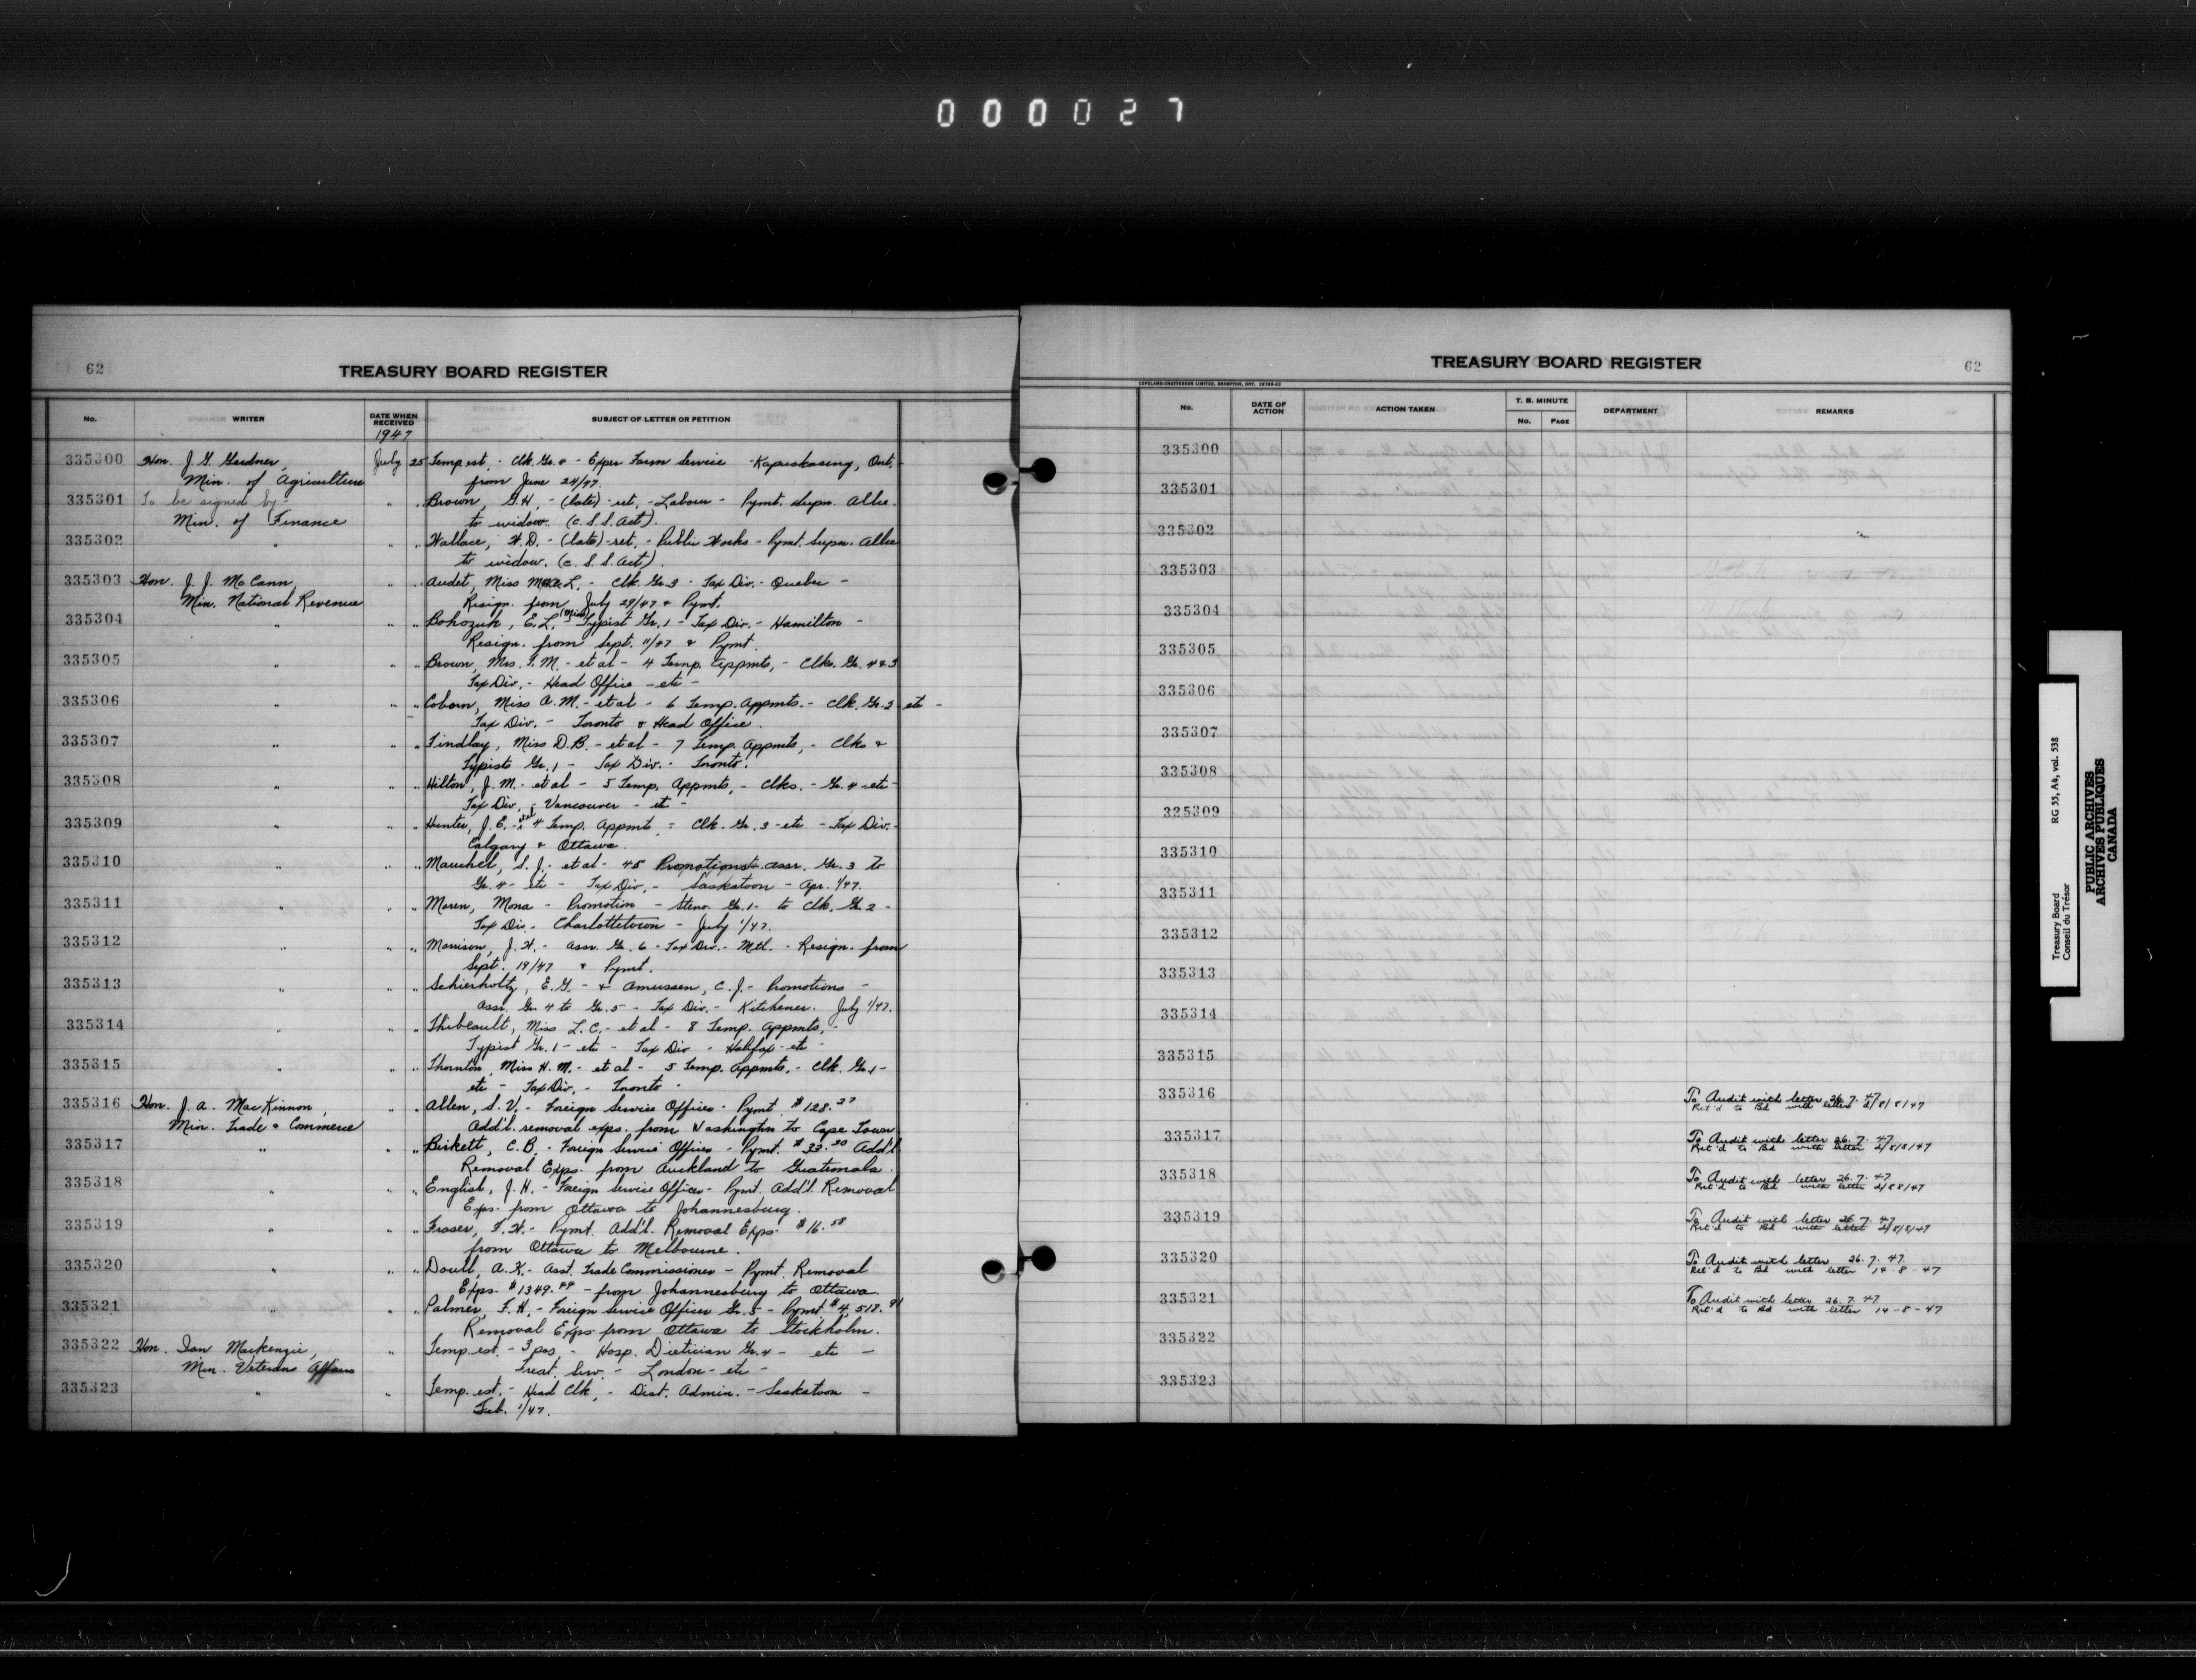 0 0 0 0 2 7
62
TREASURY BOARD REGISTER
No. WRITER DATE WHEN RECEIVED SUBJECT OF LETTER OR PETITION
1947
335300 Hon. J. G. Gardner, July 25 Temp. est. - Clk. Gr. 4 - Exper Farm Service - Kapuskasing, Ont.
Min. of Agriculture from June 24/47.
335301 To be signed by - " " Brown, G.H. - (late) - ret. - Labour - Pymt. Supn. Allce.
Min. of Finance to widow. (C.S.S. Act).
335302 " " " Wallace, W.D. - (late) - ret. - Public Works - Pymt. Supn. Allce
to widow. (C.S.S. Act).
335303 Hon. J. J. McCann, " " Audet, Miss L. - Clk. Gr. 3 - Tax Div. - Quebec -
Min. National Revenue Resign. from July 29/47 & Pymt.
335304 " " Bohozuk, E.L. (Miss) - Typist Gr. 1 - Tax Div. - Hamilton -
Resign. from Sept. 11/47 & Pymt.
335305 " " " Brown, Mrs. F.M. - et al - 4 Temp. Appmts, - Clks. Gr. 4 & 3
Tax Div. - Head Office - etc -
335306 " " " Coborn, Miss A.M. - et al - 6 Temp. Appmts. - Clk. Gr. 2 - etc -
Tax Div. - Toronto & Head Office.
335307 " " " Findlay, Miss D.B. - et al - 7 Temp. Appmts, - Clks &
Typists Gr. 1 - Tax Div. - Toronto.
335308 " " " Hilton, J.M. - et al - 5 Temp. Appmts, - Clks. - Gr. 4 - etc -
Tax Div. - Vancouver - etc -
335309 " " " Hunter, J.E. - et al 4 Temp. Appmts - Clk. Gr. 3 - etc - Tax Div. -
Calgary & Ottawa.
335310 " " " Mauchel, S.J. - et al - 45 Promotions - Assr. Gr. 3 to
Gr. 4 - etc - Tax Div. - Saskatoon - Apr. 1/47.
335311 " " " Maren, Mona - Promotion - Steno. Gr. 1 - to Clk. Gr. 2 -
Tax Div. - Charlottetown - July 1/47.
335312 " " " Morrison, J.H. - Assr. Gr. 6 - Tax Div. - Mtl. - Resign. from
Sept. 19/47 & Pymt.
335313 " " " Schierholtz, E.G. - & Amussen, C.J. - Promotions -
Assr. Gr. 4 to Gr. 5 - Tax Div. - Kitchener. July 1/47.
335314 " " " Thibeault, Miss L.C. - et al - 8 Temp. Appmts, -
Typist Gr. 1 - etc - Tax Div - Halifax - etc -
335315 " " " Thornton, Miss H.M. - et al - 5 Temp. Appmts. - Clk. Gr. 1 -
etc - Tax Div. - Toronto -
335316 Hon. J. A. MacKinnon, " " Allen, S.V. - Foreign Service Officer - Pymt $128.27
Min. Trade & Commerce Add'l. removal exps. from Washington to Cape Town
335317 " " " Birkett, C.B. - Foreign Service Officer - Pymt. $33.20 Add'l
Removal Exps. from Auckland to Guatemala.
335318 " " " English, J.H. - Foreign Service Officer - Pymt. Add'l. Removal
Exps. from Ottawa to Johannesburg.
335319 " " " Fraser, F.W. - Pymt. Add'l. Removal Exps. $16.58
from Ottawa to Melbourne.
335320 " " " Doull, A.K. - Asst. Trade Commissioner - Pymt. Removal
Exps. $1349.44 - from Johannesburg to Ottawa.
335321 " " " Palmer, F.H. - Foreign Service Officer Gr. 5 - Pymt $4,518.91
Removal Exps from Ottawa to Stockholm.
335322 Hon. Ian Mackenzie, " Temp. est. - 3 pos. - Hosp. Dietician Gr. 4 - etc -
Min. Veterans Affairs Treat. Serv. - London - etc -
335323 " " Temp. est. - Head Clk, - Dist. Admin. - Saskatoon -
Feb. 1/47.
TREASURY BOARD REGISTER
62
COPELAND-CHATTERSON LIMITED, BRAMPTON, ONT.
No. DATE OF ACTION ACTION TAKEN T. B. MINUTE No. PAGE DEPARTMENT REMARKS
335300
335301
335302
335303
335304
335305
335306
335307
335308
335309
335310
335311
335312
335313
335314
335315
335316 To Audit with letter 26.7.47
Ret'd to Bd with letter 2/8/47
335317 To Audit with letter 26.7.47
Ret'd to Bd with letter
335318 To Audit with letter 26.7.47
Ret'd to Bd with letter
335319 To Audit with letter 26.7.47
Ret'd to Bd with letter
335320 To Audit with letter 26.7.47.
Ret'd to Bd with letter 14-8-47
335321 To Audit with letter 26.7.47
Ret'd to Bd with letter 14-8-47
335322
335323
Treasury Board RG 55, A4, vol. 538
Conseil du Trésor
PUBLIC ARCHIVES
ARCHIVES PUBLIQUES
CANADA